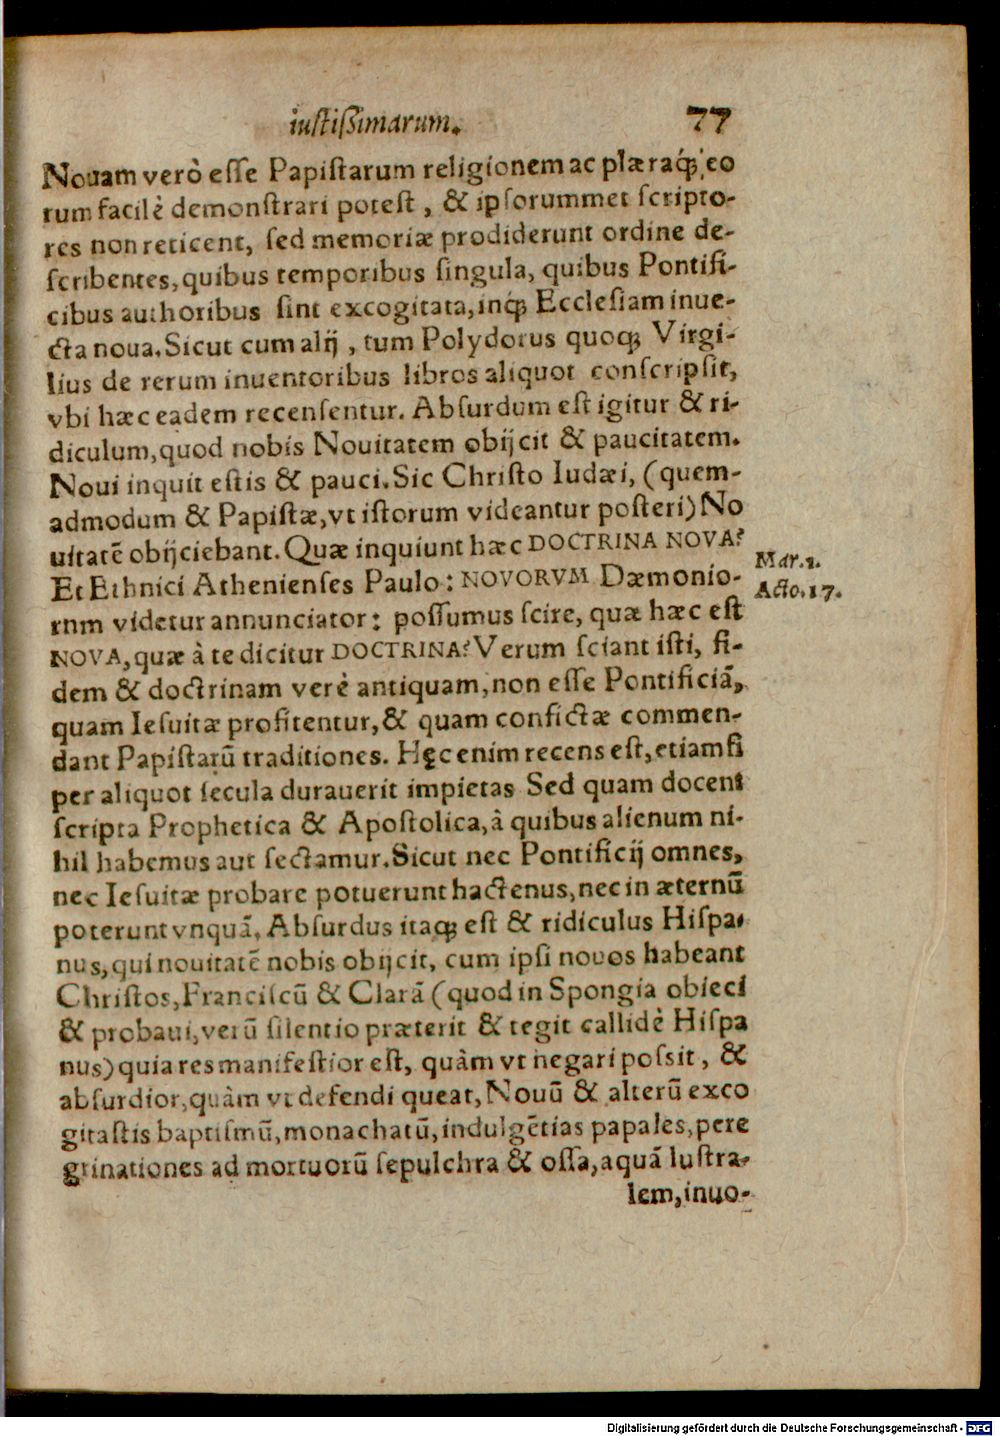 iustißimarum. 77
Nouam verò esse Papistarum religionem ac plæraq́; eo
rum facilè demonstrari potest, & ipsorummet scripto-
res non reticent, sed memoriæ prodiderunt ordine de-
scribentes, quibus temporibus singula, quibus Pontifi-
cibus authoribus sint excogitata, inq́; Ecclesiam inue-
cta noua. Sicut cum alij, tum Polydorus quoq; Virgi-
lius de rerum inuentoribus libros aliquot conscripsit,
vbi hæc eadem recensentur. Absurdum est igitur & ri-
diculum, quod nobis Nouitatem obijcit & paucitatem.
Noui inquit estis & pauci. Sic Christo Iudæi, (quem-
admodum & Papistæ, vt istorum videantur posteri) No
uitatē obijciebant. Quæ inquiunt hæc DOCTRINA NOVA?
Mar.1.
Et Ethnici Athenienses Paulo: NOVORVM Dæmonio-
Acto.17.
rnm videtur annunciator: possumus scire, quæ hæc est
NOVA, quæ à te dicitur DOCTRINA? Verum sciant isti, fi-
dem & doctrinam verè antiquam, non esse Pontificiā,
quam Iesuitæ profitentur, & quam confictæ commen-
dant Papistarū traditiones. Hęc enim recens est, etiamsi
per aliquot secula durauerit impietas Sed quam docent
scripta Prophetica & Apostolica, à quibus alienum ni-
hil habemus aut sectamur. Sicut nec Pontificij omnes,
nec Iesuitæ probare potuerunt hactenus, nec in æternū
poterunt vnquā. Absurdus itaq; est & ridiculus Hispa-
nus, qui nouitatē nobis obijcit, cum ipsi nouos habeant
Christos, Franciscū & Clarā (quod in Spongia obieci
& probaui, verū silentio præterit & tegit callidè Hispa
nus) quia res manifestior est, quàm vt negari possit, &
absurdior, quàm vt defendi queat, Nouū & alterū exco
gitastis baptismū, monachatū, indulgētias papales, pere
grinationes ad mortuorū sepulchra & ossa, aquā lustra-
lem, inuo-
Digitalisierung gefördert durch die Deutsche Forschungsgemeinschaft - DFG